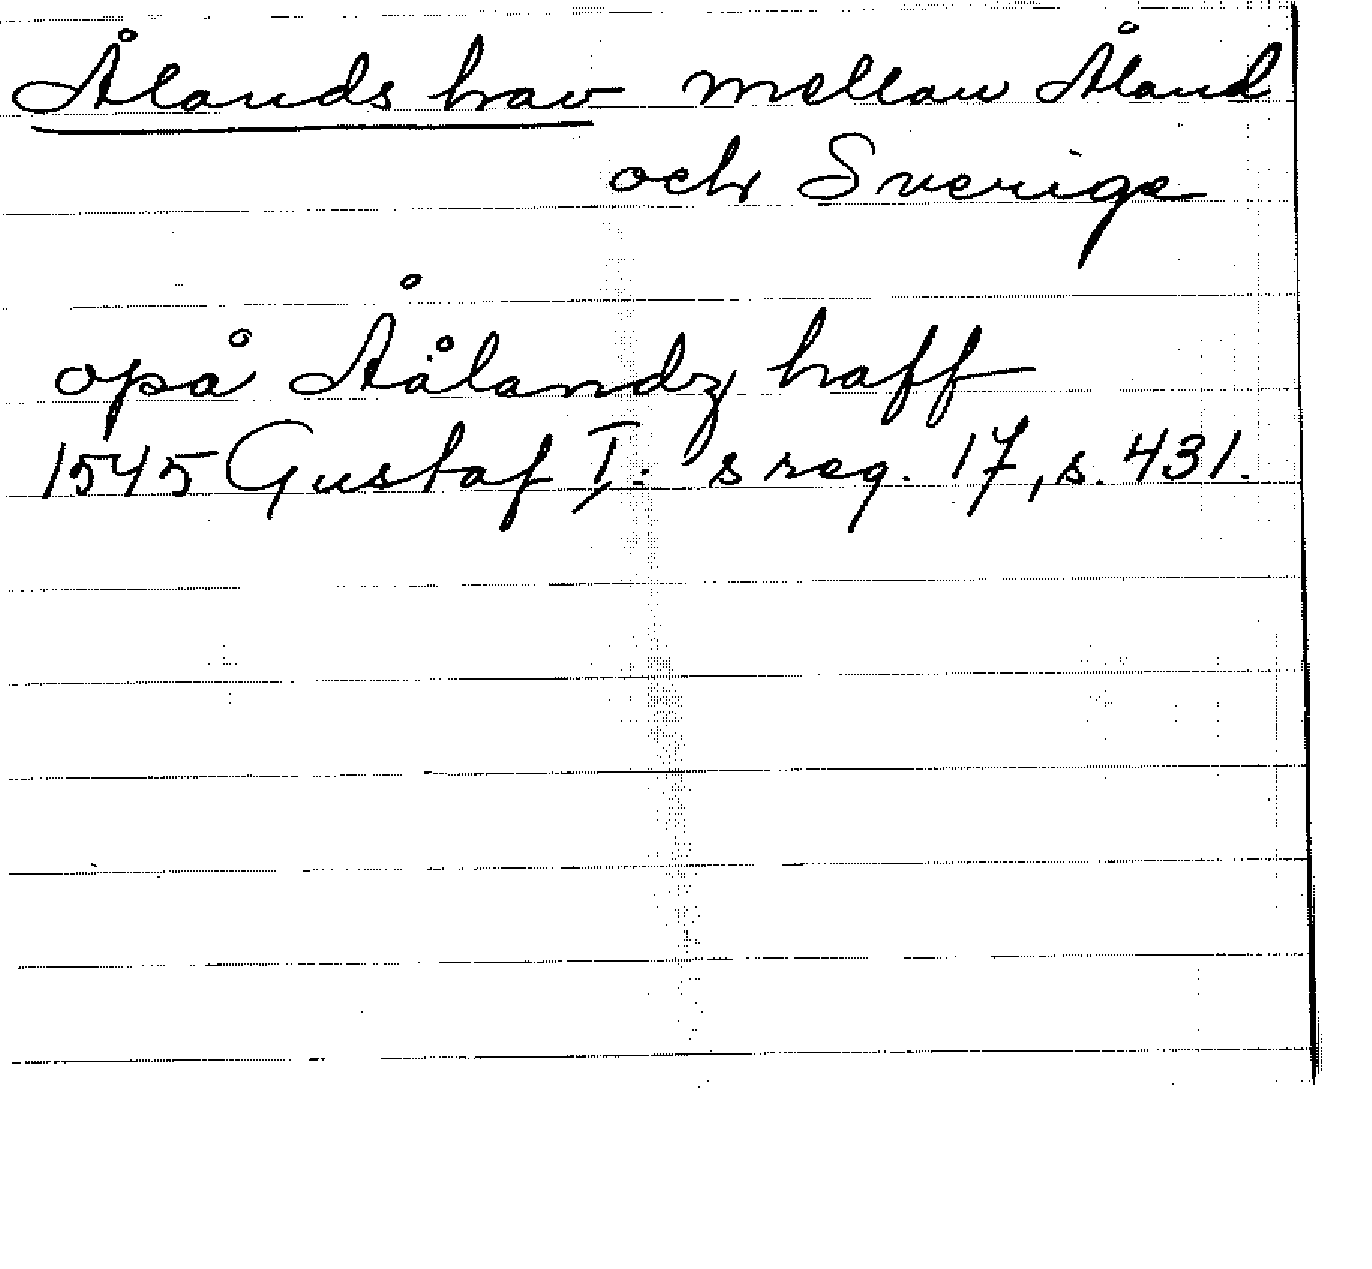 Ålands hav mellan Åland
och Sverige
opå Åålandz haff
1545 Gustaf I: s reg. 17, s. 431.